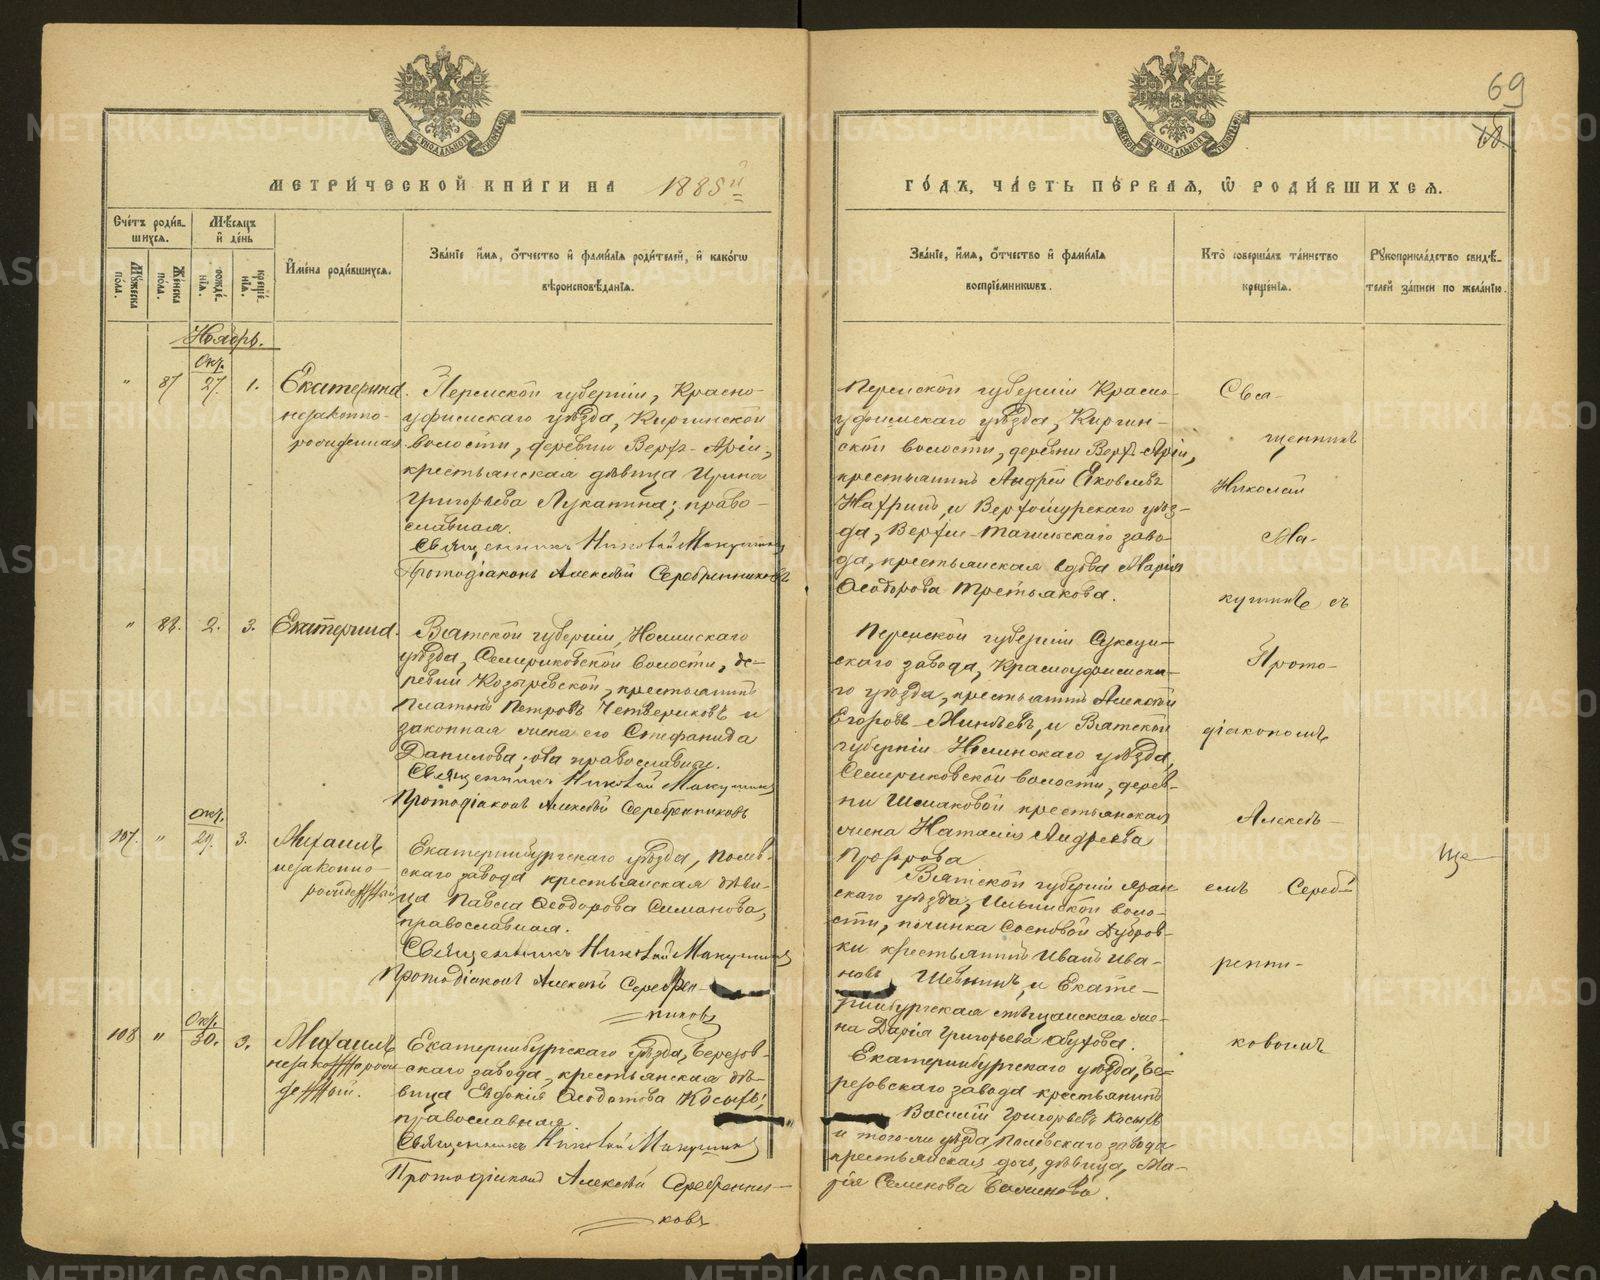 69
68
МЕТРИ́ЧЕСКОЙ КНИ́ГИ НА 1885й
ГО́ДЪ, ЧА́СТЬ ПЕ́РВАЯ, Ѡ РОДИ́ВШИХСЯ.
Сче́тъ роди́в-
шихся.
Му́жеска пола̀.
Же́нска по́ла.
Мѣ́сяцъ
и҆ де́нь
рожде́нїя.
креще́нїя.
И҆мена̀ роди́вшихся.
Зва́нїе и҆́мя, ѻ҆́тчество и҆ фами́лїя роди́телей, и҆ како́гѡ
вѣроисповѣ́данїя.
Зва́нїе, и҆́мя, ѻ҆́тчество и҆ фами́лїя
воспрїе́мникѡвъ.
Кто̀ соверша́лъ та́инство
креще́нїя.
Рꙋкоприкла́дство свидѣ́-
телей за́писи по жела́нїю.
Ноябрь.
Окт.
" 87 27. 1.
Екатерина
незаконно-
рожденная
Пермской губерніи, Красно-
уфимскаго уѣзда, Киргинской
волости, деревни Верхъ-Аріи,
крестьянская дѣвица Ирина
Григорьева Лукатина; право-
славная.
Священникъ Николай Макушинъ
Протодіаконъ Алексѣй Серебренниковъ
Пермской губерніи Красно-
уфимскаго уѣзда, Киргин-
ской волости, деревни Верхъ-Аріи,
крестьянинъ Андрей Яковлевъ
и Верхотурскаго уѣз-
да, Верхне-Тагильскаго заво-
да, крестьянская вдова Марія
Ѳеодорова Третьякова.
Свя-
щенникъ
Николай
Ма-
кушинъ съ
Прото-
діакономъ
Алексѣ-
емъ Сереб-
ренни-
ковымъ
" 88. 2. 3. Екатерина.
Вятской губерніи, Нолинскаго
уѣзда, Семериковской волости, де-
ревни Козыревской, крестьянинъ
Платонъ Петровъ Четвериковъ и
законная жена его Стефанида
Данилова; оба православные.
Священникъ Николай Макушинъ
Протодіаконъ Алексѣй Серебренниковъ
Пермской губерніи Суксун-
скаго завода, Красноуфимска-
го уѣзда, крестьянинъ Алексѣй
Егоровъ и Вятской
губерніи Нолинскаго уѣзда,
Семериковской волости, дерев-
ни крестьянская
жена Наталія Андреева
Прозорова
Окт.
107. " 29. 3.
Михаилъ
незаконно-
рожденный
Екатеринбургскаго уѣзда, Полев-
скаго завода крестьянская дѣви-
ца Павла Ѳеодорова Симанова,
православная.
Священникъ Николай Макушинъ
Протодіаконъ Алексѣй Серебрен-
никовъ
Вятской губерніи Яран
скаго уѣзда, Ильинской воло-
сти, починка Сосновой Дубров-
ки крестьянинъ Иванъ Ива-
новъ и Екате-
ринбургская мѣщанская же-
на Дарія Григорьева
Окт.
108 " 30. 3.
Михаилъ
незаконнорож
денный.
Екатеринбургскаго уѣзда, Березов-
скаго завода, крестьянская дѣ-
вица Евдокія Ѳеодотова Косыхъ,
православная.
Священникъ Николай Макушинъ
Протодіаконъ Алексѣй Серебренни-
ковъ
Екатеринбургскаго уѣзда, Бе-
резовскаго завода крестьянинъ
Василій Григорьевъ Косыхъ
и того-же уѣзда, Полевскаго завода
крестьянская дочь, дѣвица, Ма-
рія Семенова